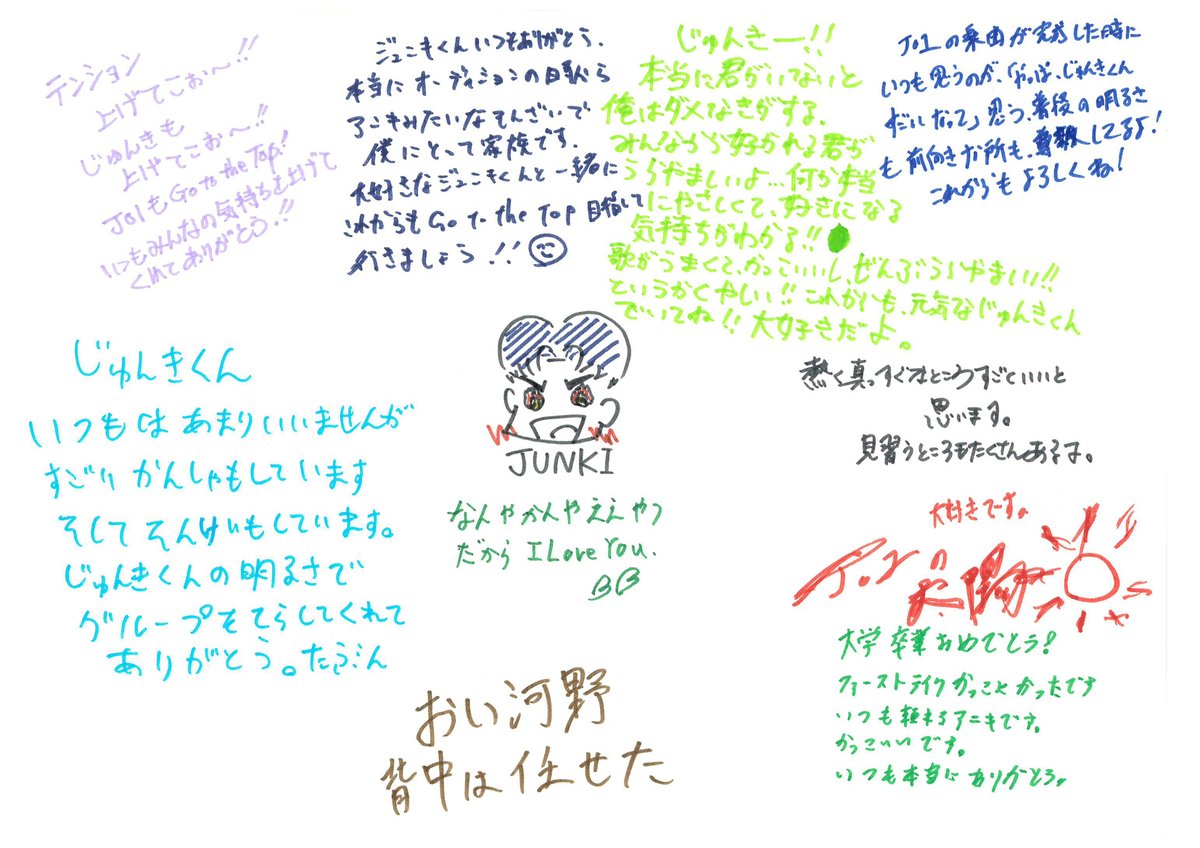 テンション
上げてこぉ〜!!
じゅんきも
上げてこぉ〜!!
JO1もGo to the Top!
いつもみんなの気持ちを上げて
くれてありがとう!!
ジュンキくんいつもありがとう.
本当にオーディションの日から
アニキみたいなそんざいで
僕にとって家族です.
大好きなジュンキくんと一緒に
これからもGo to the Top 目指して
行きましょう!!
じゅんきー!!
本当に君がいてないと
俺はダメなきがする.
みんなから好かれる君が
うらやましいよ…何か本当
にやさしくて、好きになる
気持ちがわかる!!
歌がうまくて、かっこいいし、ぜんぶうらやまいい!!
というかくやしい!!これからも、元気なじゅんきくん
でいてね!!大好きだよ。
JO1の楽曲が完成した時に
いつも思うのが、「やっぱ、じゅんきくん
だいなって」思う.普段の明るさ
も前向きな所も、してるよ!
これからもよろしくね!
じゅんきくん
いつもは あまりいいませんが
すごい かんしゃもしています
そして そんけいもしています。
じゅんきくんの明るさで
グループをてらしてくれて
ありがとう。たぶん
JUNKI
なんやかんやええやつ
だから I Love You.
熱く真っすぐなところすごくいいと
思います。
見習うところもたくさんあるよ。
大好きです。
JO1の太陽
大学卒業おめでとう!
ファーストテイクかっこよかったです
いつも頼れるアニキです。
かっこいいです。
いつも本当にありがとう。
おい河野
背中は任せた